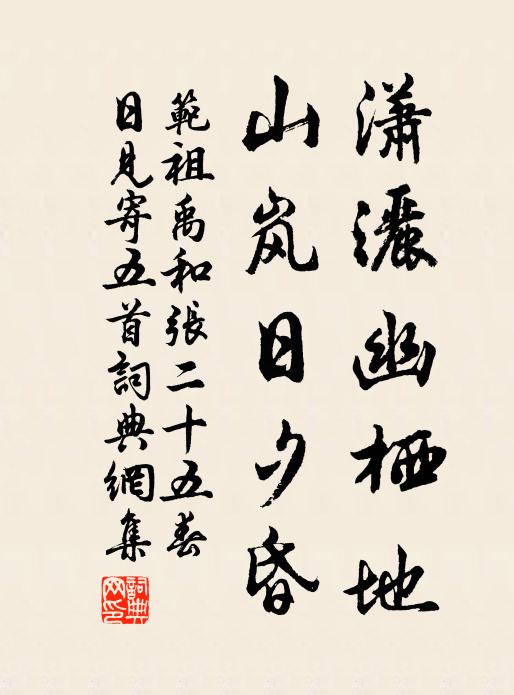 潇灑幽栖地
山岚日夕昏
範祖禹和張二十五春
日見寄五首詞典網集
詞典網印